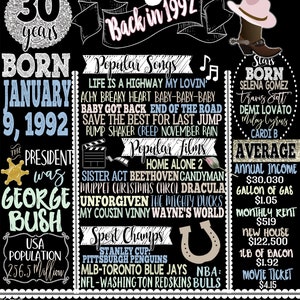 30
years
Back in 1992
BORN
JANUARY
9, 1992
THE PRESIDENT
was
GEORGE
BUSH
USA
POPULATION
256.5 Million
Popular Songs
LIFE IS A HIGHWAY MY LOVIN'
ACHY BREAKY HEART BABY-BABY-BABY
BABY GOT BACK END OF THE ROAD
SAVE THE BEST FOR LAST JUMP
RUMP SHAKER CREEP NOVEMBER RAIN
Popular Films
HOME ALONE 2
SISTER ACT BEETHOVEN CANDYMAN
MUPPET CHRISTMAS CAROL DRACULA
UNFORGIVEN THE MIGHTY DUCKS
MY COUSIN VINNY WAYNE'S WORLD
Sport Champs
STANLEY CUP:
PITTSBURGH PENGUINS
MLB-TORONTO BLUE JAYS
NBA:
BULLS
NFL-WASHINGTON REDSKINS
Stars
BORN
SELENA GOMEZ
Travis Scott
DEMI LOVATO
Miley Cyrus
CARDI B
AVERAGE
ANNUAL INCOME
$30,030
GALLON OF GAS
$1.05
MONTHLY RENT
$519
NEW HOUSE
$122,500
1 LB OF BACON
$1.92
MOVIE TICKET
$4.15